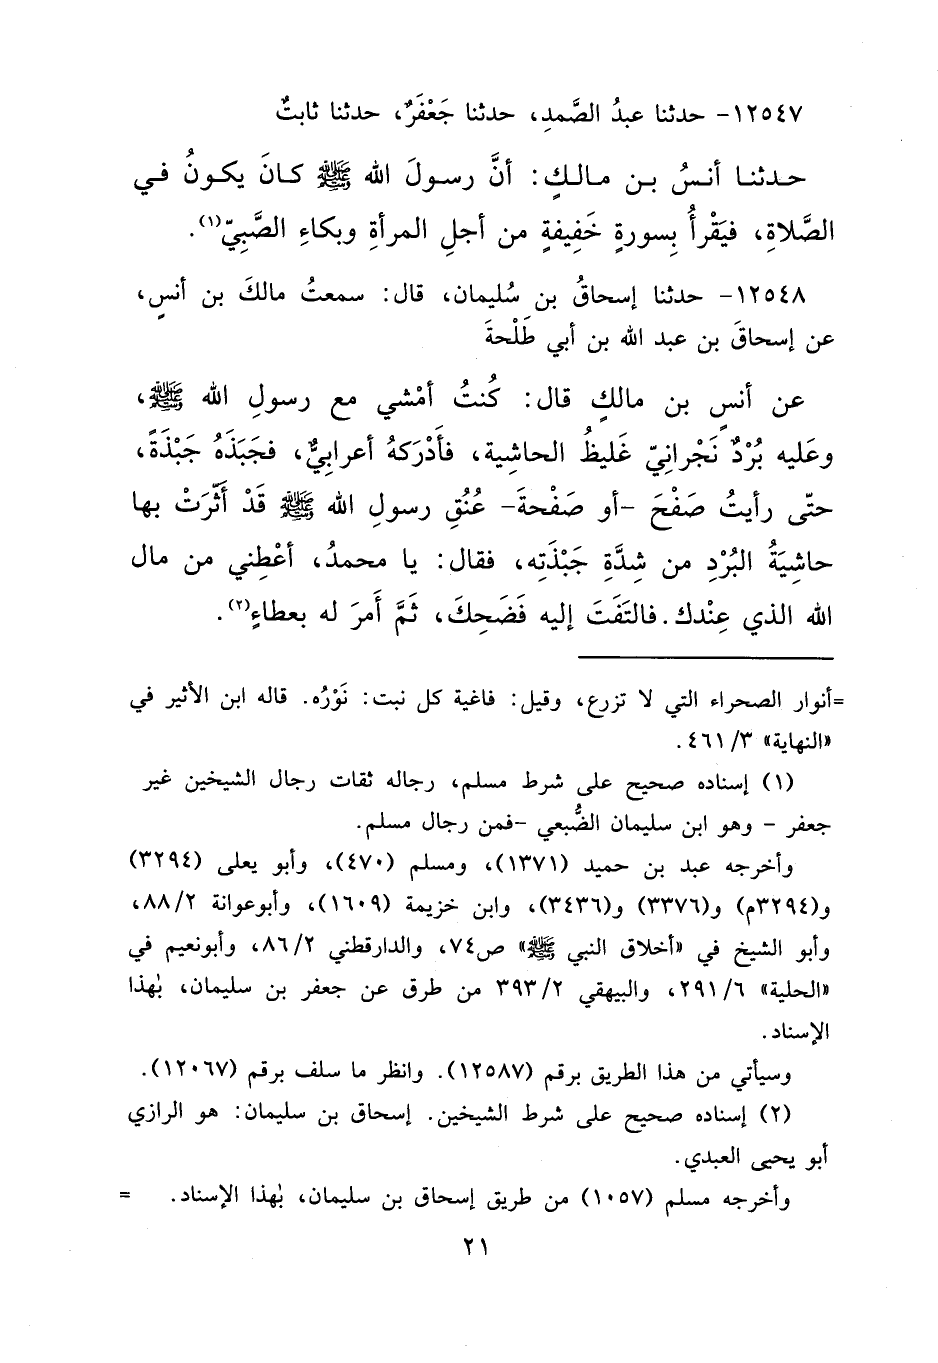 ١٢٥٤٧- حدثنا عبدُ الصَّمدِ، حدثنا جَعْفَرٌ، حدثنا ثابتٌ
حدثنا أنسُ بن مالكٍ: أنَّ رسولَ الله ﷺ كانَ يكونُ في
الصَّلاةِ، فيَقْرأُ بِسورةٍ خَفِيفةٍ من أجلِ المرأةِ وبكاءِ الصَّبِيّ(١).
١٢٥٤٨- حدثنا إسحاقُ بن سُليمان، قال: سمعتُ مالكَ بن أنسٍ،
عن إسحاقَ بن عبد الله بن أبي طَلْحةَ
عن أنسِ بن مالكٍ قال: كُنتُ أمْشي مع رسولِ الله ﷺ،
وعَليه بُرْدٌ نَجْرانِيّ غَليظُ الحاشِية، فأَدْركهُ أعرابِيٌّ، فجَبَذَهُ جَبْذَةً،
حتّى رأيتُ صَفْحَ -أو صَفْحةَ- عُنُقِ رسولِ الله ﷺ قَدْ أَثَّرَتْ بها
حاشِيَةُ البُرْدِ من شِدَّةِ جَبْذَتِه، فقال: يا محمدُ، أعْطِني من مال
الله الذي عِنْدك. فالتَفَتَ إليه فَضَحِكَ، ثَمَّ أَمرَ له بعطاءٍ(٢).
=أنوار الصحراء التي لا تزرع، وقيل: فاغية كل نبت: نَوْرُه. قاله ابن الأثير في
«النهاية» ٤٦١/٣.
(١) إسناده صحيح على شرط مسلم، رجاله ثقات رجال الشيخين غير
جعفر - وهو ابن سليمان الضُّبعي -فمن رجال مسلم.
وأخرجه عبد بن حميد (١٣٧١)، ومسلم (٤٧٠)، وأبو يعلى (٣٢٩٤)
و(٣٢٩٤م) و(٣٣٧٦) و(٣٤٣٦)، وابن خزيمة (١٦٠٩)، وأبوعوانة ٨٨/٢،
وأبو الشيخ في «أخلاق النبي ﷺ» ص٧٤، والدارقطني ٨٦/٢، وأبونعيم في
«الحلية» ٢٩١/٦، والبيهقي ٣٩٣/٢ من طرق عن جعفر بن سليمان، بهٰذا
الإسناد.
وسيأتي من هذا الطريق برقم (١٢٥٨٧). وانظر ما سلف برقم (١٢٠٦٧).
(٢) إسناده صحيح على شرط الشيخين. إسحاق بن سليمان: هو الرازي
أبو يحيى العبدي.
وأخرجه مسلم (١٠٥٧) من طريق إسحاق بن سليمان، بهٰذا الإسناد. =
٢١